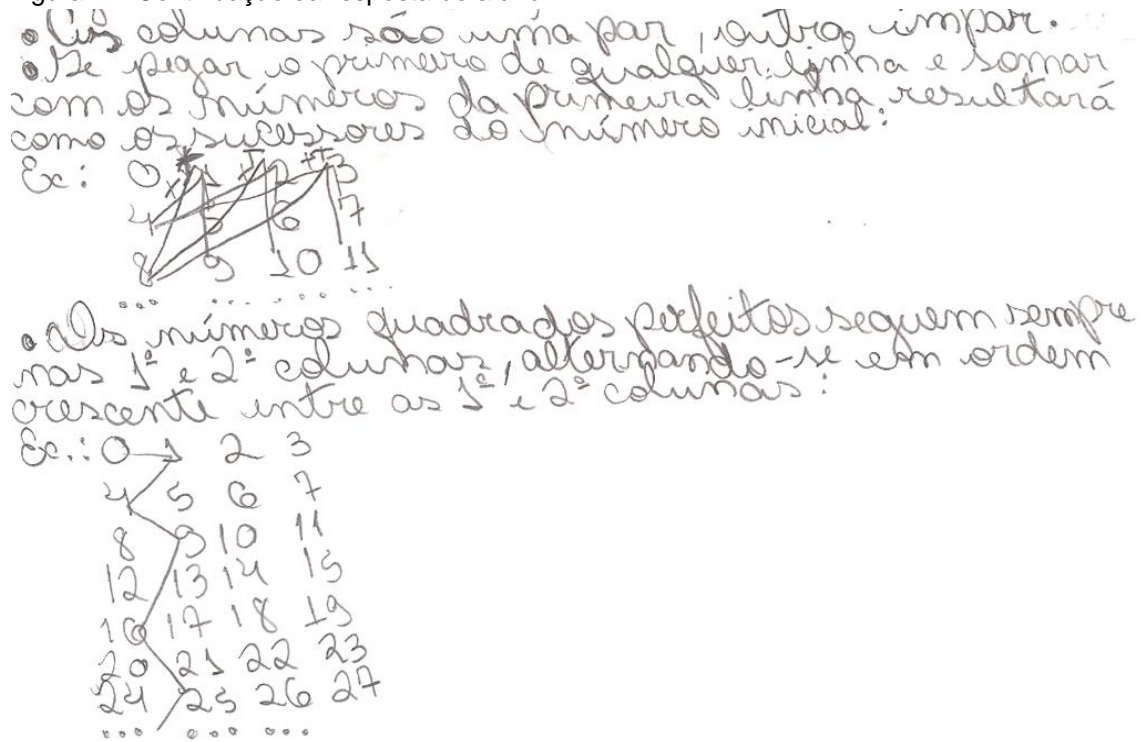 • As colunas são uma par, outra impar.
• Se pegar o primeiro de qualquer linha e somar
com os números da primeira linha, resultará
como os sucessores do número inicial:
Ex: 0 +1 +2 +3
4 5 6 7
8 9 10 11
... ... ... ...
• Os números quadrados perfeitos seguem sempre
nas 1ª e 2ª colunas, alternando-se em ordem
crescente entre as 1ª e 2ª colunas:
Ex.: 0 1 2 3
4 5 6 7
8 9 10 11
12 13 14 15
16 17 18 19
20 21 22 23
24 25 26 27
... ... ...